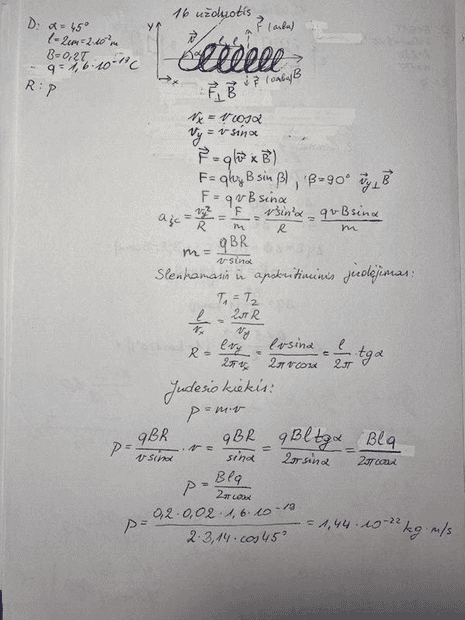 16 užduotis
D: α = 45°
l = 2cm = 2·10⁻²m
B = 0,2T
q = 1,6·10⁻¹⁹C
R: p
y
x
v⃗
α
l
F⃗ (arba)
F⃗ (arba) B⃗
F⃗ ⊥ B⃗
vₓ = v cosα
v_y = v sinα
F⃗ = q(v⃗ × B⃗)
F = q(v_y B sin β), β = 90° v⃗_y ⊥ B⃗
F = q v B sinα
a_įc = v_y²/R = F/m = v² sin²α/R = q v B sinα/m
m = qBR/v sinα
Slenkamasis ir apskritiminis judėjimas:
T₁ = T₂
l/vₓ = 2πR/v_y
R = l v_y/2π vₓ = l v sinα/2π v cosα = l/2π · tgα
Judesio kiekis:
p = m·v
p = qBR/v sinα · v = qBR/sinα = qBl tgα/2π sinα = Blq/2π cosα
p = Blq/2π cosα
p = 0,2·0,02·1,6·10⁻¹⁹/2·3,14·cos45° = 1,44·10⁻²² kg·m/s